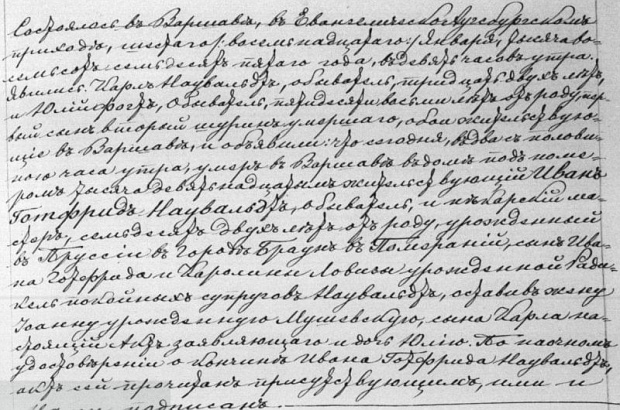 Состоялась въ Варшавѣ, въ Евангелическо Аугсбургскомъ
приходѣ, шестаго /: восемьнадцатаго :/ Января, тысяча во-
семьсотъ семьдесятъ пятаго года, въ девять часовъ утра.
явились: Карлъ Наувальдтъ, обыватель, тридцать двухъ лѣтъ,
и Юлій Фостъ, обыватель, пятидесяти восьми лѣтъ отъ роду, пер-
вый сынъ второй шуринъ умершаго, обои жительствую-
щіе въ Варшавѣ, и объявили: что сегодня, въ два съ полови-
ною часа утра, умеръ въ Варшавѣ въ домѣ подъ номе-
ромъ тысяча девятьнадцатымъ жительствующій Иванъ
Готфридъ Наувальдтъ, обыватель, и пекарскій ма-
стеръ, семьдесятъ двухъ лѣтъ отъ роду, урожденный
въ Пруссіи въ Городѣ въ Помераніи, сынъ Ива-
на Готфрида и Каролины Ловизы урожденной Ради-
кель покойныхъ супруговъ Наувальдтъ, оставивъ жену
Іоанну урожденную Мушевскую, сына Карла на-
стоящій Актъ заявляющаго и дочь Юлію. По наочномъ
удостовѣреніи о кончинѣ Ивана Готфрида Наувальдтъ,
актъ сей прочитанъ присутствующимъ, ими и
подписанъ.